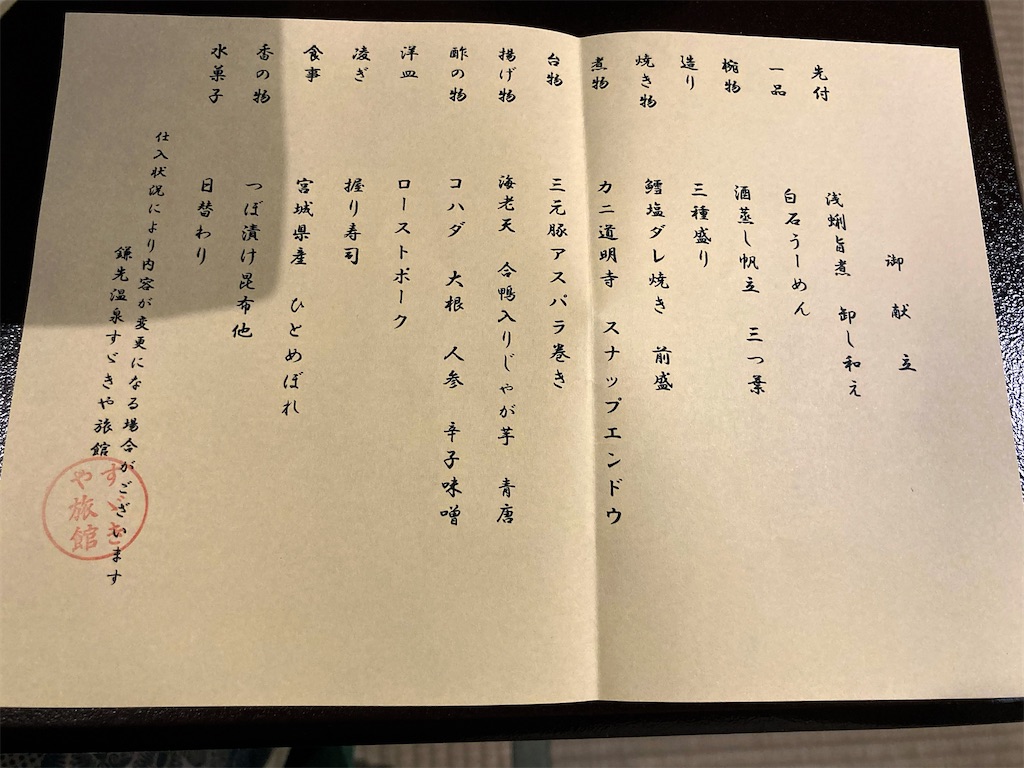 御献立
先付 浅蜊旨煮 卸し和え
一品 白石うーめん
椀物 酒蒸し帆立 三つ葉
造り 三種盛り
焼き物 鱈塩ダレ焼き 前盛
煮物 カニ道明寺 スナップエンドウ
台物 三元豚アスパラ巻き
揚げ物 海老天 合鴨入りじゃが芋 青唐
酢の物 コハダ 大根 人参 辛子味噌
洋皿 ローストポーク
凌ぎ 握り寿司
食事 宮城県産 ひとめぼれ
香の物 つぼ漬け昆布他
水菓子 日替わり
仕入状況により内容が変更になる場合がございます
鎌先温泉すゞきや旅館
すゞき
や旅館